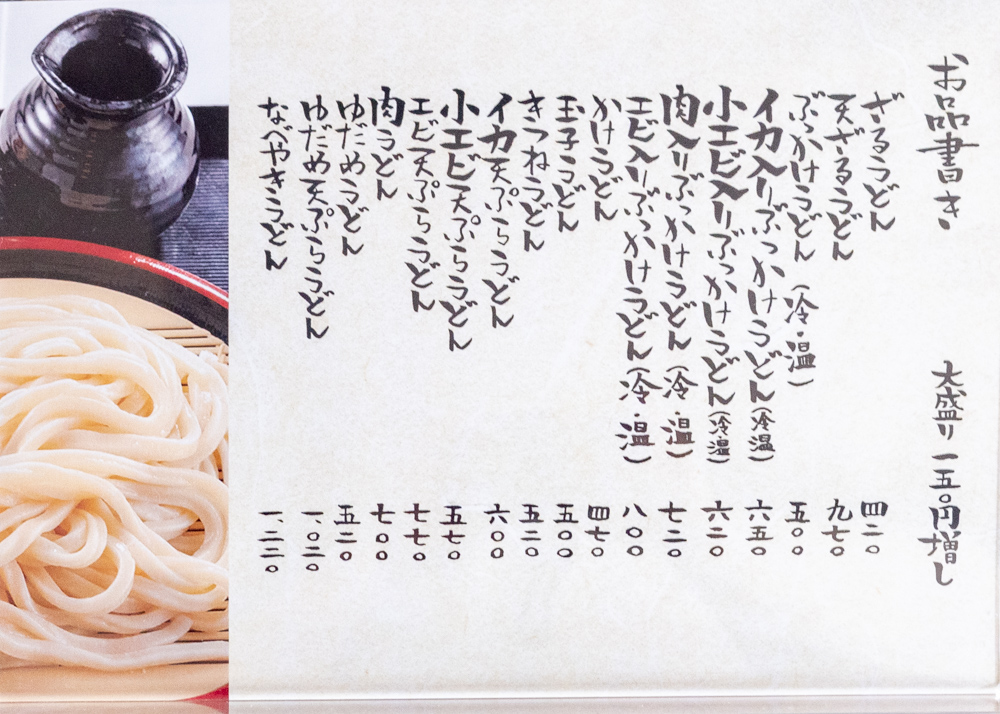 お品書き 大盛り 一五〇円増し
ざるうどん 四二〇
天ざるうどん 九七〇
ぶっかけうどん(冷・温) 五〇〇
イカ入りぶっかけうどん(冷・温) 六五〇
小エビ入りぶっかけうどん(冷・温) 六二〇
肉入りぶっかけうどん(冷・温) 七二〇
エビ入りぶっかけうどん(冷・温) 八〇〇
かけうどん 四七〇
玉子うどん 五〇〇
きつねうどん 五二〇
イカ天ぷらうどん 六〇〇
小エビ天ぷらうどん 五七〇
エビ天ぷらうどん 七七〇
肉うどん 七〇〇
ゆだめうどん 五二〇
ゆだめ天ぷらうどん 一、〇二〇
なべやきうどん 一、二二〇